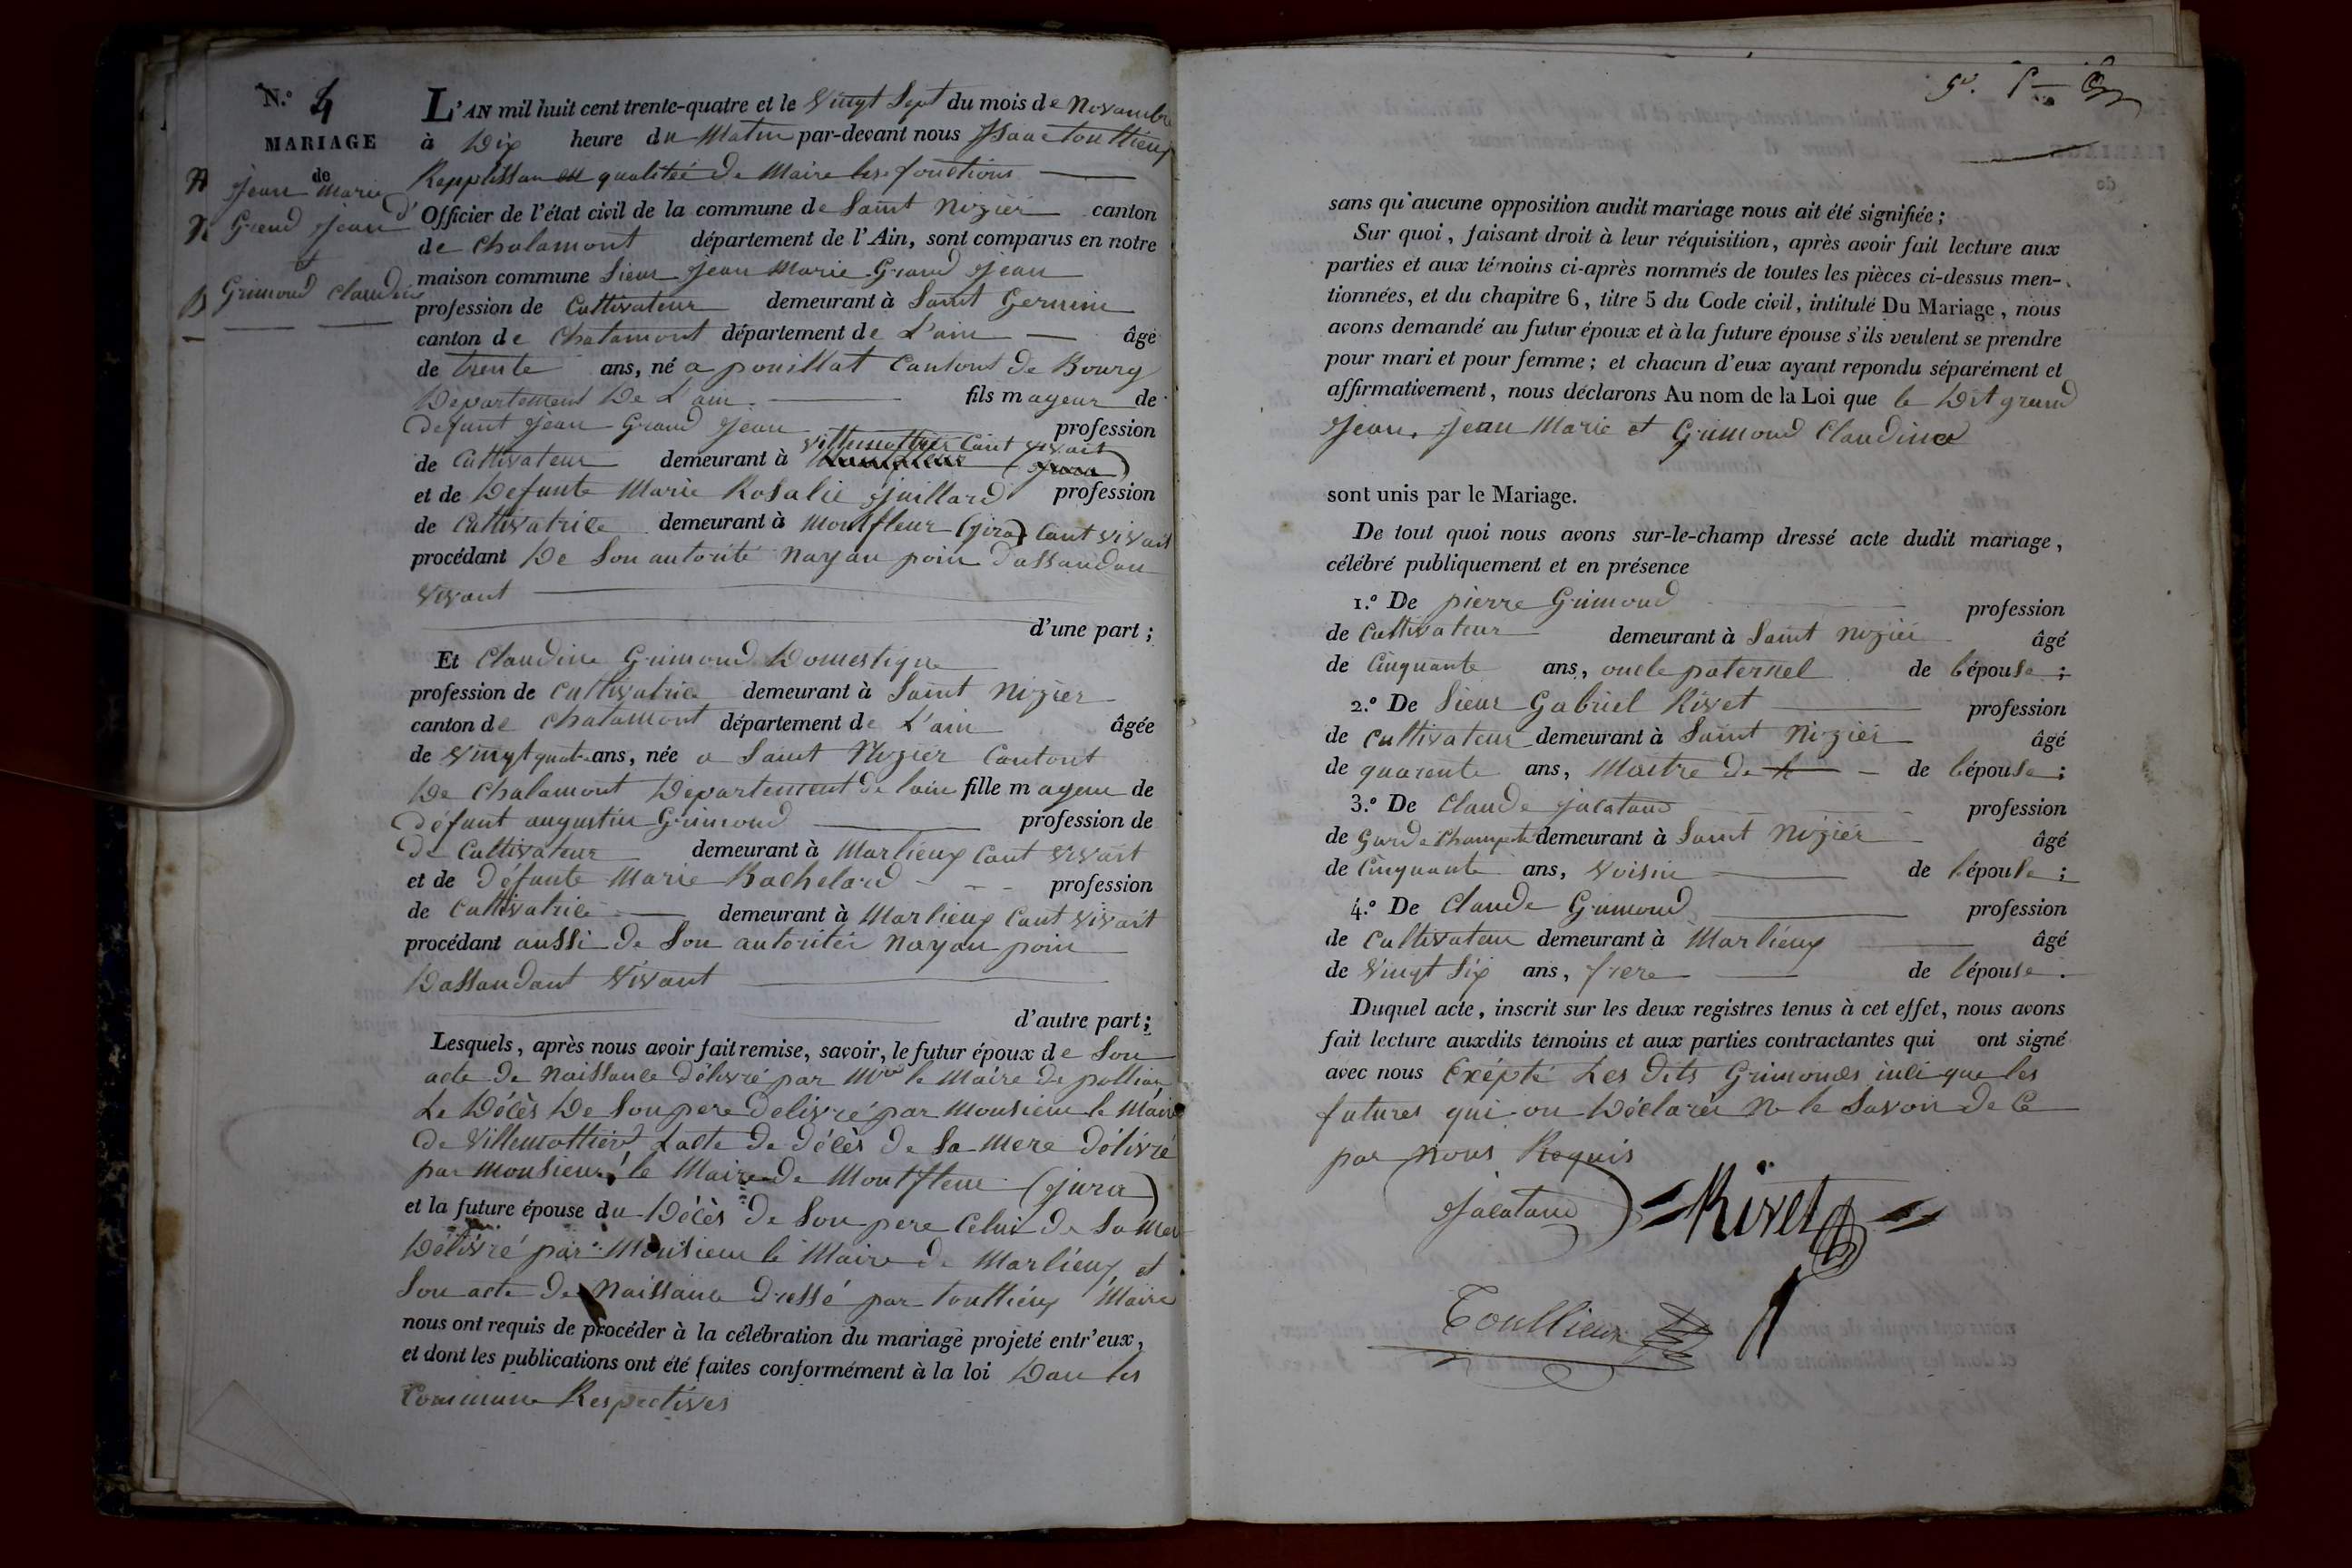 N.º 4
MARIAGE
de
Jean Marie
Grand Jean
et
Grimond Claudine
L'AN mil huit cent trente-quatre et le Vingt Sept du mois de Novambre
à Dix heure du Matin par-devant nous Isaac Toullieux
Remplissan en qualitée de Maire les fonctions
d'Officier de l'état civil de la commune de Saint Nizier canton
de Chalamont département de l'Ain, sont comparus en notre
maison commune Sieur Jean Marie Grand Jean
profession de Cultivateur demeurant à Saint Germin
canton de Chalamont département de L'ain âgé
de trente ans, né a pouillat Cantont de Bourg
Département De L'ain fils mageur de
Defunt Jean Grand Jean profession
de Cultivateur demeurant à Villemottier Cant Vivait
et de Defunte Marie Rosalie Juillard profession
de Cultivatrice demeurant à Montfleur (Jura) Cant Vivait
procédant De Son autorité Nayan poin Dassandan
Vivant
d'une part ;
Et Claudine Grimond Domestique
profession de Cultivatrice demeurant à Saint Nizier
canton de Chalamont département de L'ain âgée
de Vingt quatre ans, née a Saint Nizier Cantont
De Chalamont Département de lain fille mageur de
défunt augustin Grimond profession de
de Cultivateur demeurant à Marlieux Cant Vivait
et de défunte Marie Bachelard profession
de Cultivatrice demeurant à Marlieux Cant Vivait
procédant aussi de Son autoritée Nayan poin
Dassandant Vivant
d'autre part ;
Lesquels, après nous avoir fait remise, savoir, le futur époux de Son
acte de Naissance délivré par Mr le Maire de
Le Décès De Son pere delivré par Monsieur le Maire
de Villemottier Lacte de décès de Sa Mere délivré
par Monsieur le Maire de Montfleur (Jura)
et la future épouse du Décès de Son pere Celui de Sa Mere
Délivré par Monsieur le Maire de Marlieux et
Son acte de Naissance dressé par Toullieux Maire
nous ont requis de procéder à la célébration du mariage projeté entr'eux,
et dont les publications ont été faites conformément à la loi Dan les
Commune Respectives
sans qu'aucune opposition audit mariage nous ait été signifiée ;
Sur quoi, faisant droit à leur réquisition, après avoir fait lecture aux
parties et aux témoins ci-après nommés de toutes les pièces ci-dessus men-
tionnées, et du chapitre 6, titre 5 du Code civil, intitulé Du Mariage, nous
avons demandé au futur époux et à la future épouse s'ils veulent se prendre
pour mari et pour femme ; et chacun d'eux ayant repondu séparément et
affirmativement, nous déclarons Au nom de la Loi que le Dit grand
Jean, Jean Marie et Grimond Claudine
sont unis par le Mariage.
De tout quoi nous avons sur-le-champ dressé acte dudit mariage,
célébré publiquement et en présence
1.º De pierre Grimond profession
de Cultivateur demeurant à Saint Nizier âgé
de Cinquante ans, oncle paternel de lépouse ;
2.º De Sieur Gabriel Rivet profession
de Cultivateur demeurant à Saint Nizier âgé
de quarente ans, Maitre de de lépouse ;
3.º De Claude Jacatand profession
de Garde Champetre demeurant à Saint Nizier âgé
de Cinquante ans, Voisin de lépouse ;
4.º De Claude Grimond profession
de Cultivateur demeurant à Marlieux âgé
de Vingt Six ans, frere de lépouse .
Duquel acte, inscrit sur les deux registres tenus à cet effet, nous avons
fait lecture auxdits témoins et aux parties contractantes qui ont signé
avec nous Exépté Les dits Grimonds que les
futures qui on Déclarer Ne le Savoir de Ce
par Nous Requis
Jacatand Rivet
Toullieux